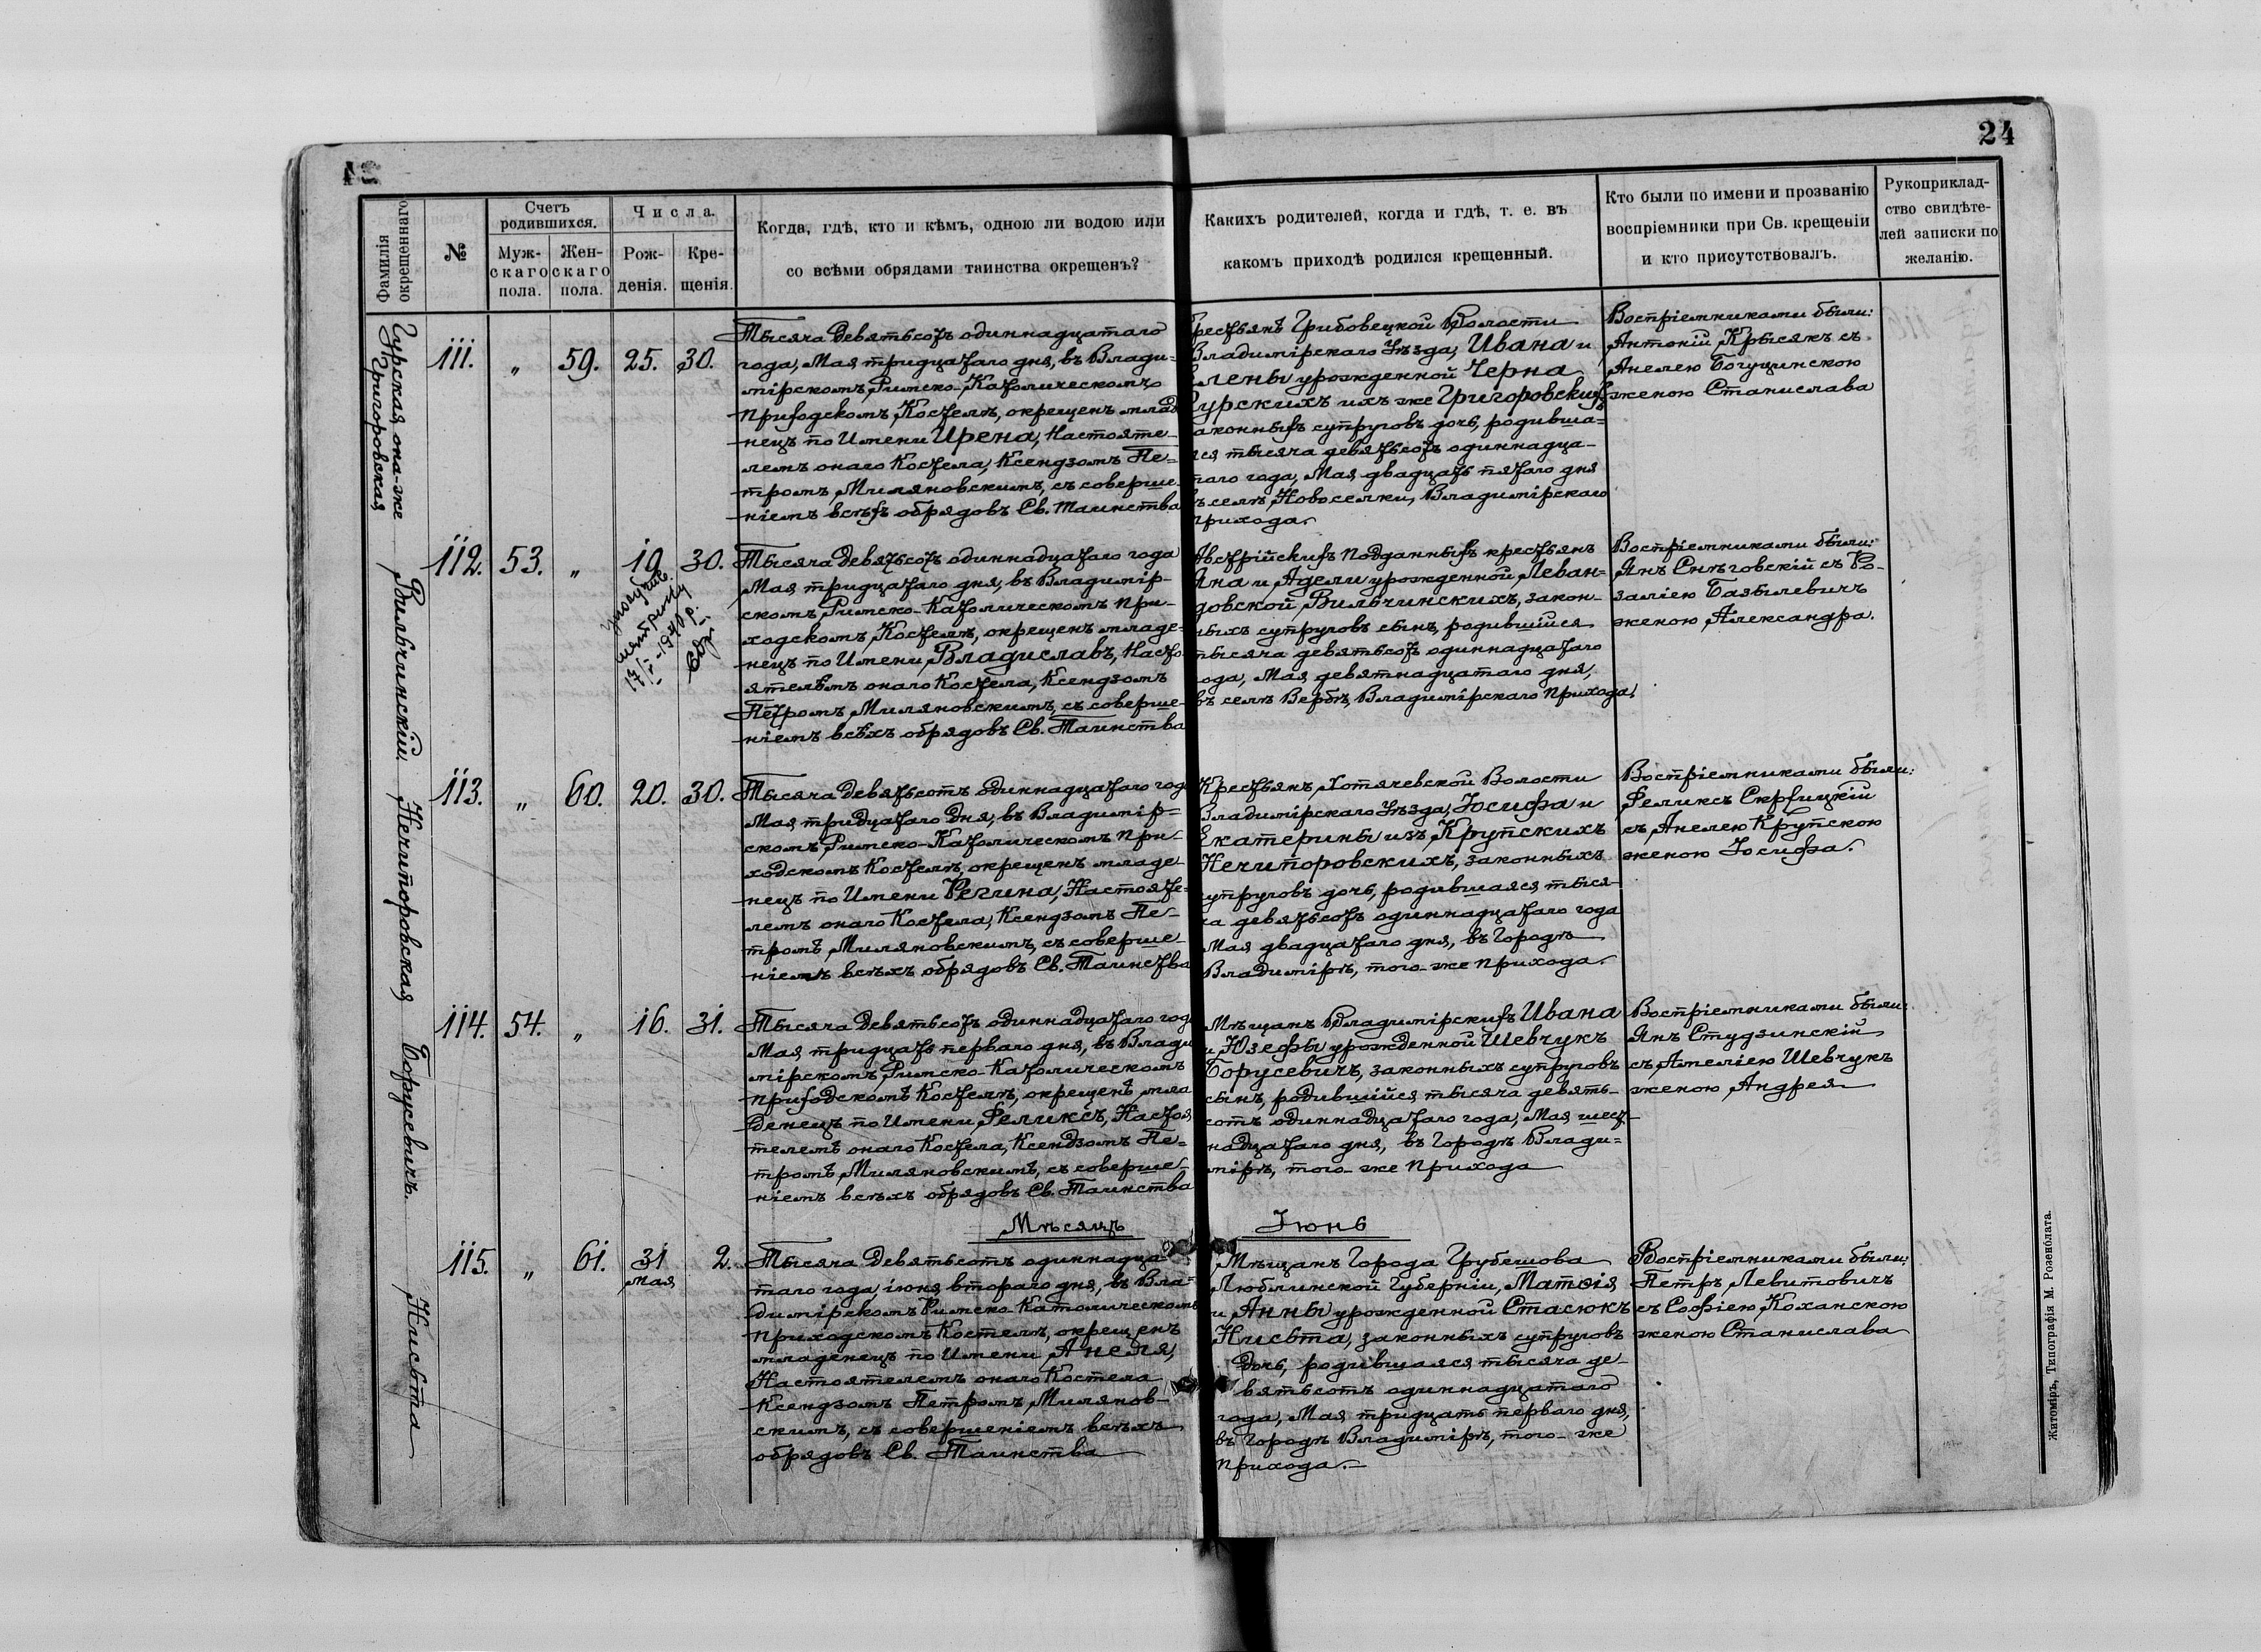 24
Фамилія окрещеннаго
№
Счетъ родившихся.
Мужскаго пола.
Женскаго пола.
Числа.
Рожденія.
Крещенія.
Когда, гдѣ, кто и кѣмъ, одною ли водою или
со всѣми обрядами таинства окрещенъ?
Какихъ родителей, когда и гдѣ, т. е. въ
какомъ приходѣ родился крещенный.
Кто были по имени и прозванію
воспріемники при Св. крещеніи
и кто присутствовалъ.
Рукоприклад-
ство свидѣте-
лей записки по
желанію.
Гурская она-же
Григоровская
111. „ 59. 25. 30.
Тысяча девятьсотъ одиннадцатаго
года, Мая тридцатаго дня, въ Влади-
мірскомъ Римско-Католическомъ
приходскомъ Костелѣ, окрещенъ млад
нецъ по Имени Ирена, Настояте-
лемъ онаго Костела, Ксендзомъ Пе-
тромъ Миляновскимъ, съ соверше-
ніемъ всѣхъ обрядовъ Св. Таинства
крестьянъ Грибовецкой Волости
Владимірскаго Уѣзда, Ивана и
Елены урожденной Черна
Гурскихъ ихъ же Григоровскихъ
законныхъ супруговъ дочь, родивша-
яся тысяча девятьсотъ одиннадца-
таго года, Мая двадцать пятаго дня
въ селѣ Новоселки, Владимірскаго
прихода.
Воспріемниками были:
Антоній Крысякъ съ
Анелею Богущинскою
женою Станислава
Вильчинскій.
112. 53. „ 19. 30.
17/I-1940 р.
Тысяча девятьсотъ одиннадцатаго года
Мая тридцатаго дня, въ Владимір-
скомъ Римско-Католическомъ при-
ходскомъ Костелѣ, окрещенъ младе-
нецъ по Имени Владиславъ, Насто
ятелемъ онаго Костела, Ксендзомъ
Петромъ Миляновскимъ, съ соверше-
ніемъ всѣхъ обрядовъ Св. Таинства
Австрійскихъ подданныхъ крестьянъ
Яна и Адели урожденной Леван-
довской Вильчинскихъ, закон-
ныхъ супруговъ сынъ, родившійся
тысяча девятьсотъ одиннадцатаго
года, Мая девятнадцатаго дня,
въ селѣ Вербѣ, Владимірскаго прихода.
Воспріемниками были:
Янъ Снѣговскій съ Ро-
заліею Базылевичъ
женою Александра.
Нечипоровская
113. „ 60. 20. 30.
Тысяча девятьсотъ одиннадцатаго год
Мая тридцатаго дня, въ Владимір-
скомъ Римско-Католическомъ при-
ходскомъ Костелѣ, окрещенъ младе-
нецъ по Имени Регина, Настояте-
лемъ онаго Костела, Ксендзомъ Пе-
тромъ Миляновскимъ, съ соверше-
ніемъ всѣхъ обрядовъ Св. Таинства
Крестьянъ Хотячевской Волости
Владимірскаго Уѣзда, Іосифа и
Екатерины изъ Крупскихъ
Нечипоровскихъ, законныхъ
супруговъ дочь, родившаяся тыся-
ча девятьсотъ одиннадцатаго года
Мая двадцатаго дня, въ городѣ
Владимірѣ, того-же прихода.
Воспріемниками были:
Феликсъ
съ Анелею Крупскою
женою Іосифа.
Борусевичъ.
114. 54. „ 16. 31.
Тысяча девятьсотъ одиннадцатаго год
Мая тридцать перваго дня, въ Влади
мірскомъ Римско-Католическомъ
приходскомъ Костелѣ, окрещенъ мла
денецъ по Имени Феликсъ, Настоя
телемъ онаго Костела, Ксендзомъ Пе-
тромъ Миляновскимъ, съ соверше-
ніемъ всѣхъ обрядовъ Св. Таинства
Мѣщанъ Владимірскихъ Ивана
и Юзефы урожденной Шевчукъ
Борусевичъ, законныхъ супруговъ
сынъ, родившійся тысяча девять-
сотъ одиннадцатаго года, Мая шест-
надцатаго дня, въ городѣ Влади-
мірѣ, того-же прихода
Воспріемниками были:
Янъ Студзинскій
съ Амеліею Шевчукъ
женою Андрея
Мѣсяцъ Іюнь
Нисьта
115. „ 61. 31 мая 2.
Тысяча девятьсотъ одиннадца-
таго года, іюня втораго дня, въ Вла-
димірскомъ Римско-Католическомъ
приходскомъ Костелѣ, окрещенъ
младенецъ по Имени Анеля,
Настоятелемъ онаго Костела
Ксендзомъ Петромъ Милянов-
скимъ, съ совершеніемъ всѣхъ
обрядовъ Св. Таинства
Мѣщанъ Города Грубешова
Люблинской Губерніи, Матвія
и Анны урожденной Стасюкъ
Нисьта, законныхъ супруговъ
дочь, родившаяся тысяча де-
вятьсотъ одиннадцатаго
года, Мая тридцать перваго дня,
въ городѣ Владимірѣ, того-же
прихода.
Воспріемниками были:
Петръ Левитовичъ
съ Софіею Коханскою
женою Станислава
Житоміръ, Типографія М. Розенблата.